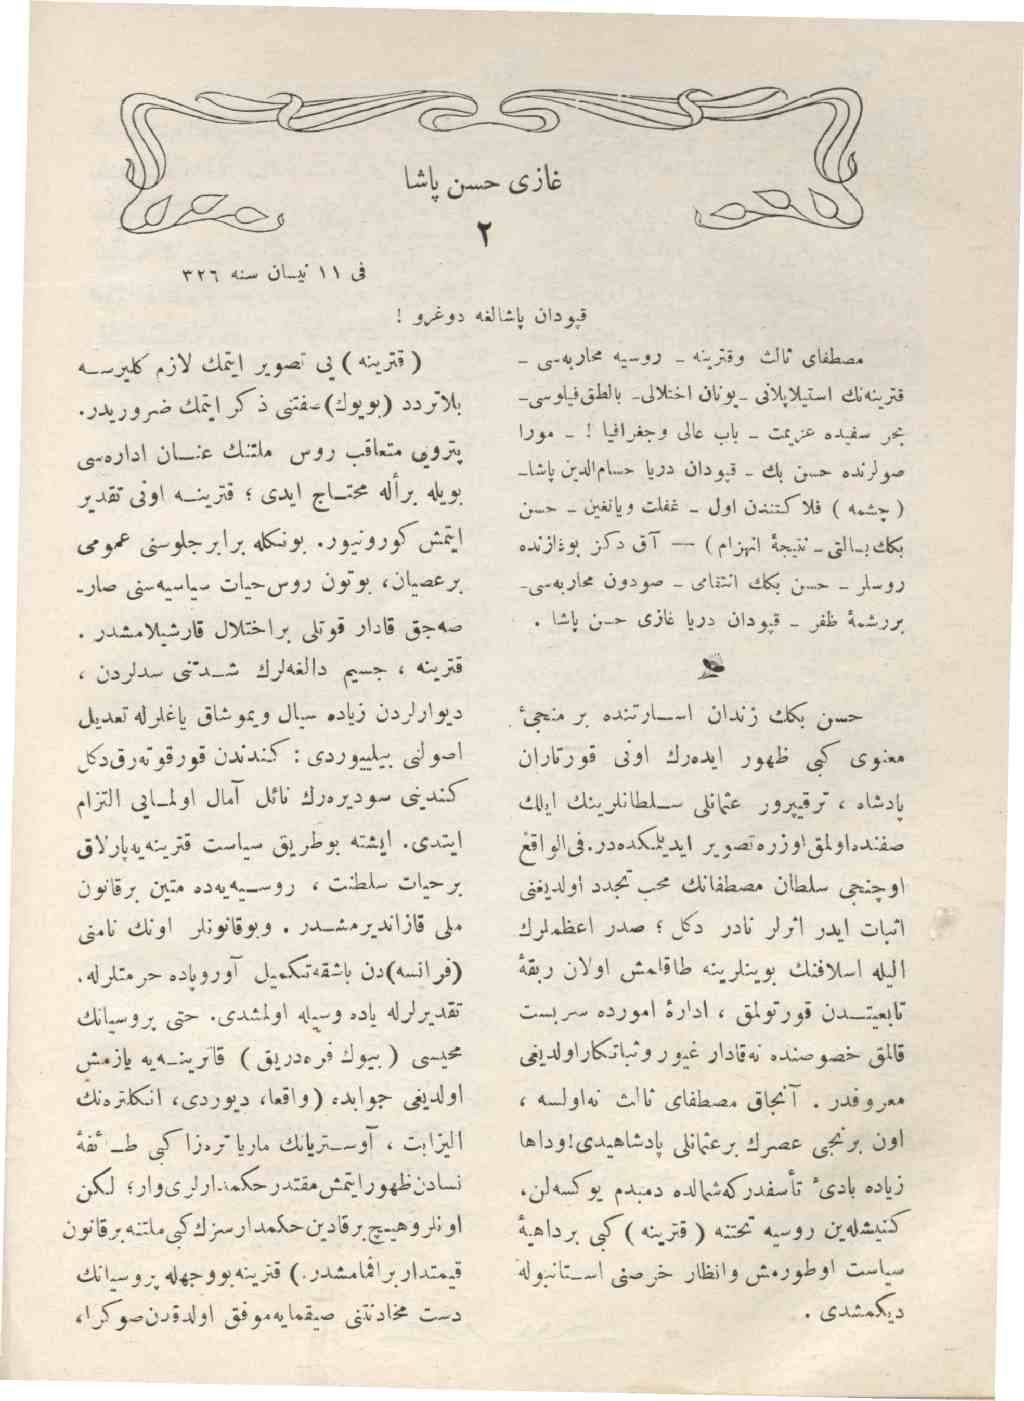 غازی حسن پاشا
۲
فی ۱۱ نیسان سنه ۳۲٦
قپودان پاشالغه دوغرو !
مصطفای ثالث وقترینه ـ روسیه محاربه‌سی ـ
قترینه‌نك استیلاپلانی ـ یونان اختلالی ـ بالطق فیلوسی ـ
بحر سفیده عزیمت ـ باب عالی وجغرافیا ! ـ مورا
صولرنده حسن بك ـ قپودان دریا حسام‌الدین پاشا ـ
( چشمه ) فلاكتندن اول ـ غفلت ویانغین ـ حسن
بكك بسالتی ـ نتیجهٔ انهزام ) — آق دكز بوغازنده
روسلر ـ حسن بكك انتقامی ـ صودون محاربه‌سی ـ
بررشمهٔ ظفر ـ قپودان دریا غازی حسن پاشا .
حسن بكك زندان اسارتنده بر منجیٔ
معنوی كبی ظهور ایده‌رك اونی قورتاران
پادشاه ، ترقیپرور عثمانلی سلطانلرینك ایلك
صفنده‌اولمق اوزره‌تصویر ایدیلمكده‌در. فی‌الواقع
اوچنجی سلطان مصطفانك محب تجدد اولدیغنی
اثبات ایدر اثرلر نادر دكل ؛ صدر اعظملرك
الیله اسلافنك بوینلرینه طاقلمش اولان ربقهٔ
تابعیتـدن قورتولمق ، ادارهٔ امورده سربست
قالمق خصوصنده نه‌قادار غیور وثباتكاراولدیغی
معروفدر . آنجاق مصطفای ثالث نه‌اولسه ،
اون برنجی عصرك برعثمانلی پادشاهیدی! وداها
زیاده بادیٔ تأسفدركه‌شمالده دمبدم یوكسه‌لن،
كنیشله‌ین روسیه تختنه ( قترینه ) كبی برداهیهٔ
سیاست اوطورمش وانظار خرصنی استانبوله
دیكمشدی .
( قترینه ) یی تصویر ایتمك لازم كلیرسه
بلاتردد (بویوك) صفتنی ذكر ایتمك ضروریدر.
پترویی متعاقب روس ملتنك عنان اداره‌سی
بویله برأله محتاج ایدی ؛ قترینه اونی تقدیر
ایتمش كورونیور. بونكله برابر جلوسنی عمومی
برعصیان، بوتون روس‌حیات سیاسیه‌سنی صارـ
صه‌جق قادار قوتلی براختلال قارشیلامشدر .
قترینه ، جسیم دالغه‌لرك شدتنی سدلردن ،
دیوارلردن زیاده سیال ویموشاق یاغلرله تعدیل
اصولنی بیلییوردی : كندندن قورقوته‌رق‌دكل
كندینی سودیره‌رك نائل آمال اولمایی التزام
ایتدی. ایشته بوطریق سیاست قترینه‌یه‌پارلاق
برحیات سلطنت ، روسیه‌یه‌ده متین برقانون
ملی قازاندیرمشدر . وبوقانونلر اونك نامنی
(فرانسه)دن باشقه‌تكمیل آوروپاده حرمتلرله،
تقدیرلرله یاده وسیله اولمشدی. حتی پروسیانك
محییسی ( بیوك فره‌دریق ) قاترینه‌یه یازمش
اولدیغی جوابده (واقعا، دیوردی، انكلتره‌نك
الیزابت ، آوستریانك ماریا تره‌زا كبی طائفهٔ
نسادن ظهورایتمش‌مقتدر حكمدارلری‌وار؛ لكن
اونلروهیچ برقادین حكمدار سزك كبی ملتنه برقانون
قیمتدار براقمامشدر.) قترینه‌بووجهله پروسیانك
دست مخادنتنی صیقمایه‌موفق اولدقدن‌صوكرا،